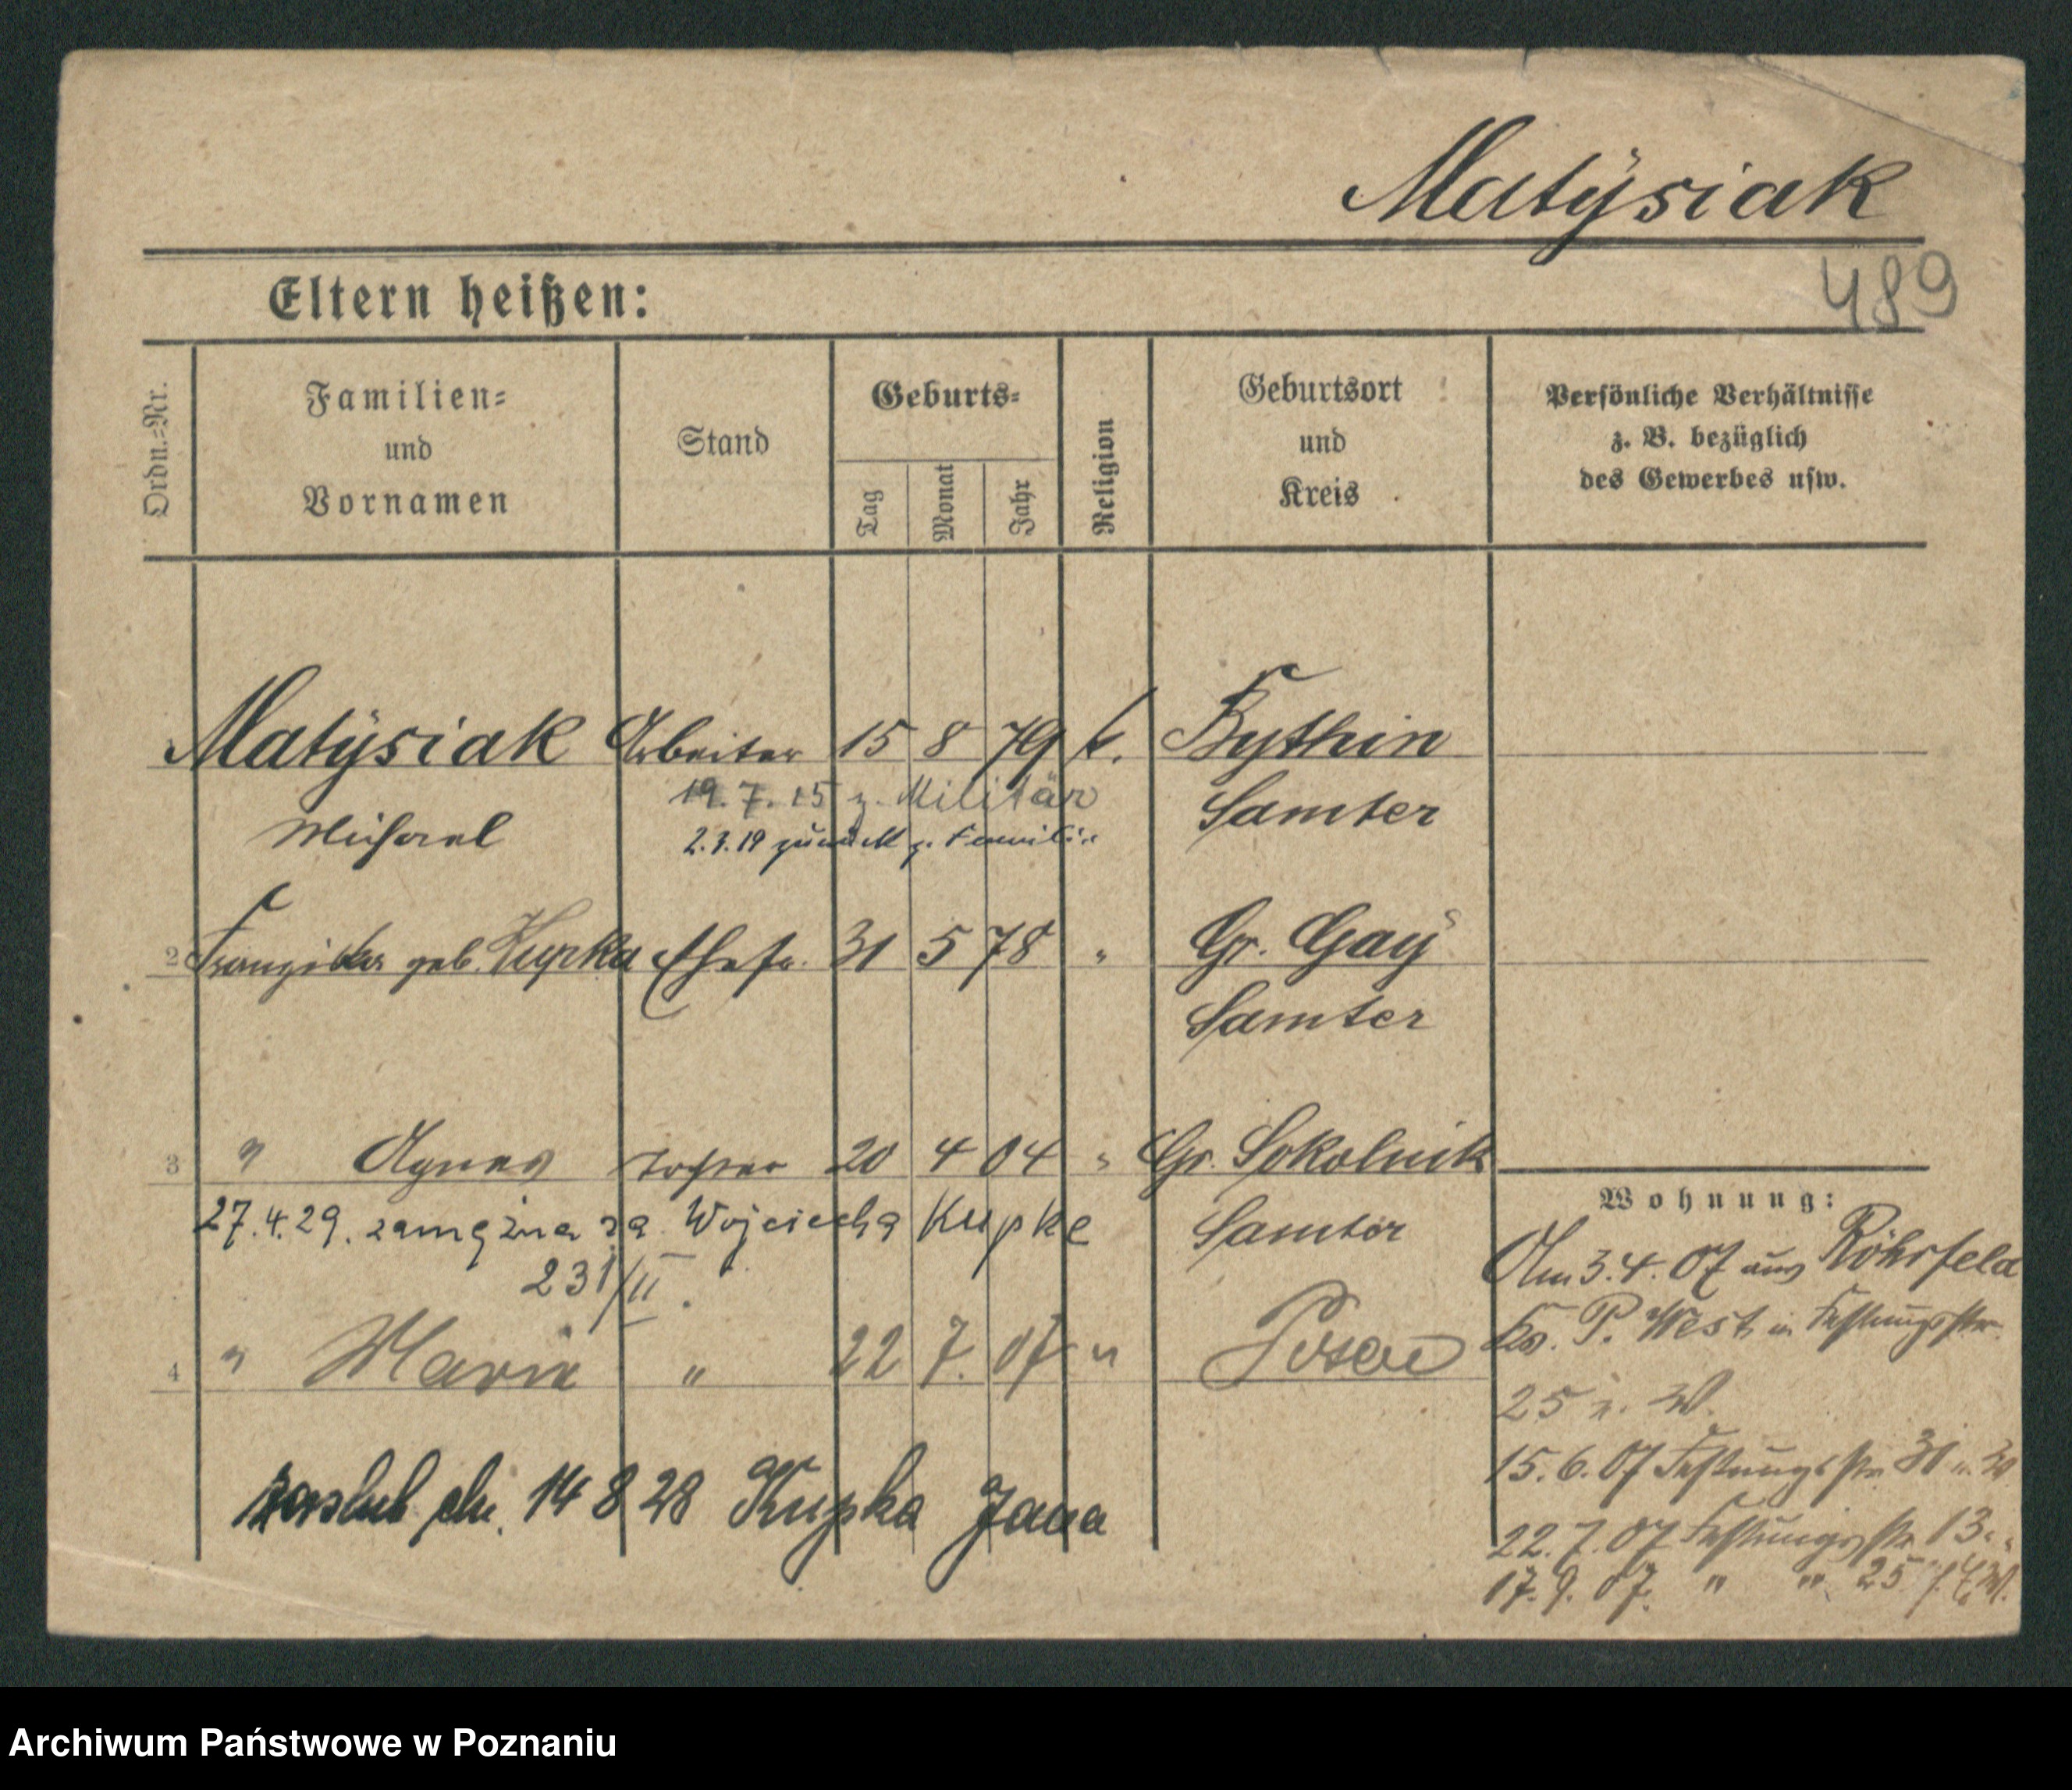 Matÿsiak
489
Eltern heißen:
Ordn.=Nr.
Familien=
und
Vornamen
Stand
Geburts=
Tag
Monat
Jahr
Religion
Geburtsort
und
Kreis
Persönliche Verhältnisse
z. B. bezüglich
des Gewerbes usw.
Matÿsiak Arbeiter 15 8 79 k. Bythin
19.7.15 z. Militär Samter
Michael 2.3.19 zurück z. Familie
2 Franziska geb. Kupka Ehefr. 31 5 78 " Gr. Gaÿ
Samter
3 " Agnes Tochter 20 4 04 " Gr. Sokolnik
27.4.29. zamężna za Wojciecha Kupkę Samter
231/II.
4 " Marie " 22 7. 07 " Posen
zaślub dn. 14 8 28 Kupka Jana
Wohnung:
Am 3.4.07 aus Röhrfeld
Kr. P. West in Festungsstr.
25 z. W.
15.6.07 Festungsstr 31
22.7.07 Festungsstr 13
17.9.07. " " 25
Archiwum Państwowe w Poznaniu